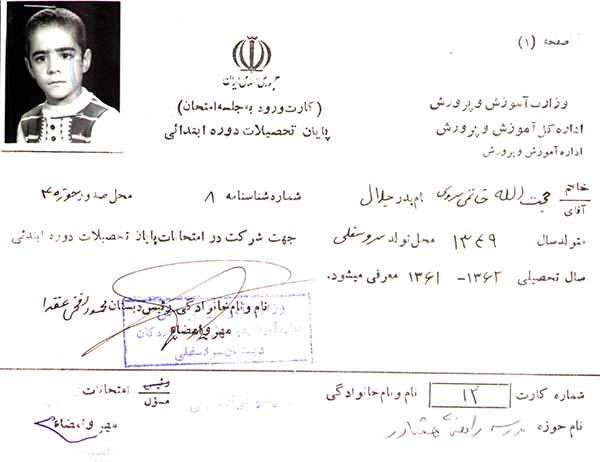 صفحه (۱)
جمهوری اسلامی ایران
(کارت ورود به جلسه امتحان)
پایان تحصیلات دوره ابتدائی
وزارت آموزش و پرورش
اداره کل آموزش و پرورش
اداره آموزش و پرورش
خانم
آقای حجت الله خاتمی سروی نام پدر جلال شماره شناسنامه ۸ محل صدور حوزه ۴
متولد سال ۱۳۴۹ محل تولد سروسفلی جهت شرکت در امتحانات پایان تحصیلات دوره ابتدئی
سال تحصیلی ۱۳۶۲ - ۱۳۶۱ معرفی میشود.
نام و نام خانوادگی رئیس دبستان
مهر و امضاء
دبستان سروسفلی
شماره کارت ۱۲ نام و نام خانوادگی رئیس امتحانات
مسؤل
نام حوزه مدرسه مهر و امضاء